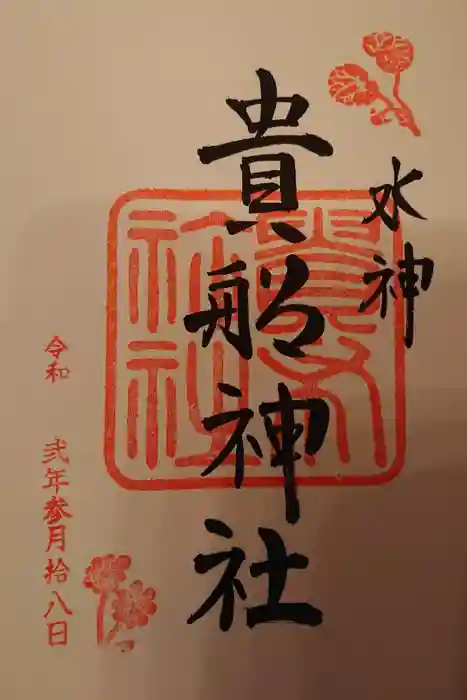 水神
貴船神社
令和 弐年参月拾八日